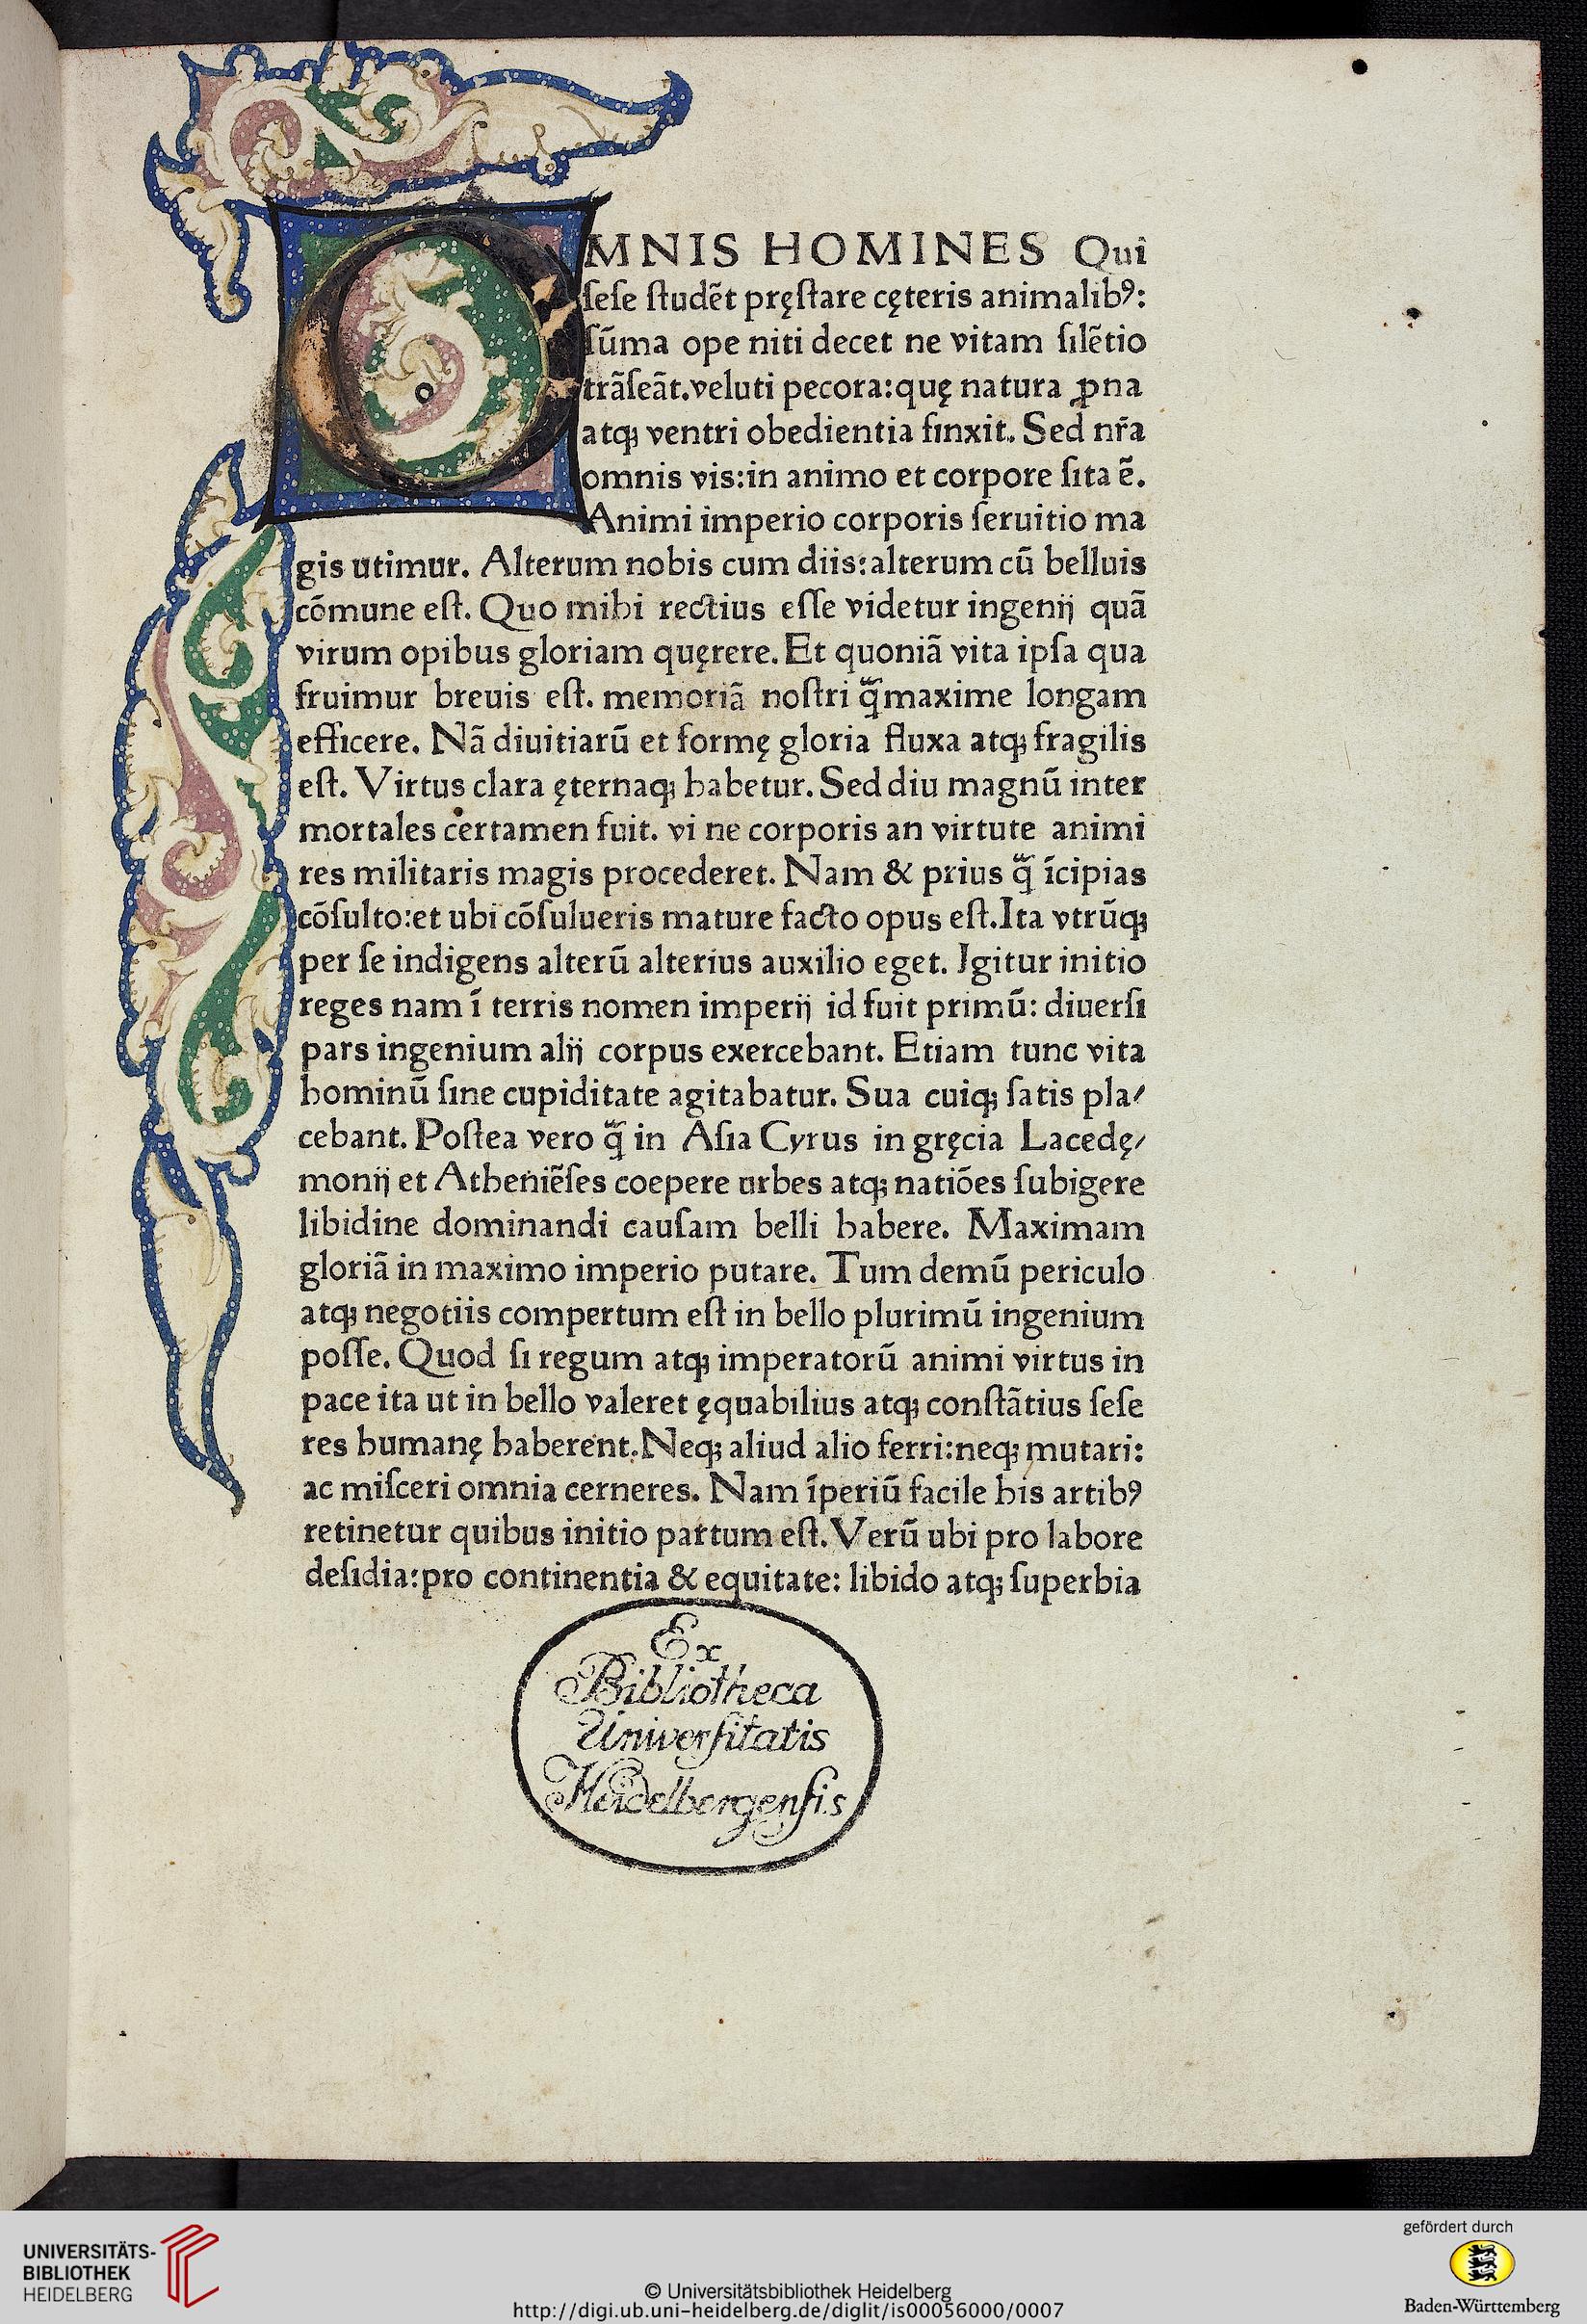 OMNIS HOMINES Qui
ſeſe ſtudēt pręſtare cęteris animalibꝰ:
ſūma ope niti decet ne vitam ſilētio
trãſeãt.veluti pecora:quę natura ꝓna
atqꝫ ventri obedientia finxit. Sed nr̃a
omnis vis:in animo et corpore ſita ē.
Animi imperio corporis ſeruitio ma
gis utimur. Alterum nobis cum diis:alterum cū belluis
cōmune eſt. Quo mihi rectius eſſe videtur ingenij quã
virum opibus gloriam quęrere. Et quoniã vita ipſa qua
fruimur breuis eſt. memoriã noſtri q̃maxime longam
efficere. Nã diuitiarū et formę gloria fluxa atqꝫ fragilis
eſt. Virtus clara ęternaqꝫ habetur. Sed diu magnū inter
mortales certamen fuit. vi ne corporis an virtute animi
res militaris magis procederet. Nam & prius q̃ īcipias
cōſulto:et ubi cōſulueris mature facto opus eſt.Ita vtrūqꝫ
per ſe indigens alterū alterius auxilio eget. Igitur initio
reges nam ī terris nomen imperij id fuit primū: diuerſi
pars ingenium alij corpus exercebant. Etiam tunc vita
hominū ſine cupiditate agitabatur. Sua cuiqꝫ ſatis pla⸗
cebant. Poſtea vero q̃ in Aſia Cyrus in gręcia Lacedę⸗
monij et Atheniēſes coepere urbes atqꝫ natiōes ſubigere
libidine dominandi cauſam belli habere. Maximam
gloriã in maximo imperio putare. Tum demū periculo
atqꝫ negotiis compertum eſt in bello plurimū ingenium
poſſe. Quod ſi regum atqꝫ imperatorū animi virtus in
pace ita ut in bello valeret ęquabilius atqꝫ conſtãtius ſeſe
res humanę haberent.Neqꝫ aliud alio ferri:neqꝫ mutari:
ac miſceri omnia cerneres. Nam īperiū facile his artibꝰ
retinetur quibus initio partum eſt. Verū ubi pro labore
deſidia:pro continentia & equitate: libido atqꝫ ſuperbia
Ex
Bibliotheca
Univerſitatis
Heidelbergenſis
UNIVERSITÄTS-
BIBLIOTHEK
HEIDELBERG
© Universitätsbibliothek Heidelberg
http://digi.ub.uni-heidelberg.de/diglit/is00056000/0007
gefördert durch
Baden-Württemberg